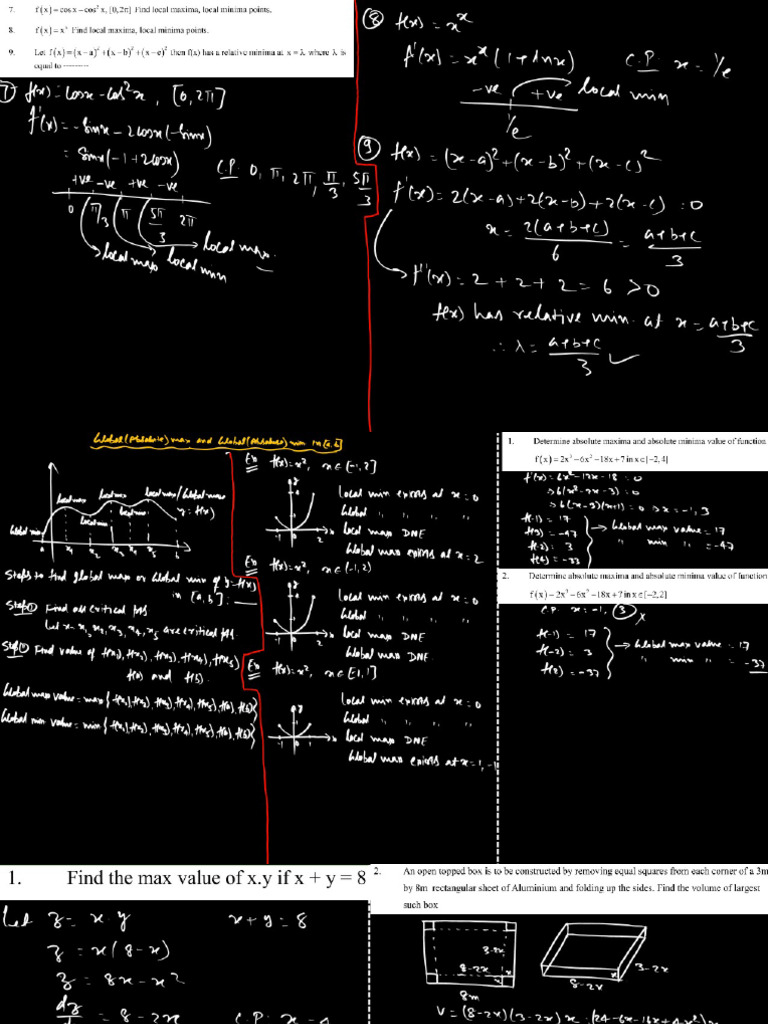 7. f(x) = cos x – cos² x, [0, 2π] Find local maxima, local minima points.
8. f(x) = xˣ Find local maxima, local minima points.
9. Let f(x) = (x – a)² + (x – b)² + (x – c)² then f(x) has a relative minima at x = λ where λ is
equal to ---------
⑦ f(x) = cosx – cos²x , [0, 2π]
f'(x) = – sinx – 2cosx(–sinx)
= sinx(–1+2cosx)
C.P: 0, π, 2π, π/3, 5π/3
+ve –ve +ve –ve
0 π/3 π 5π/3 2π
local max local min local max
⑧ f(x) = xˣ
f'(x) = xˣ(1+lnx) C.P: x = 1/e
–ve +ve local min
1/e
⑨ f(x) = (x–a)²+(x–b)²+(x–c)²
f'(x) = 2(x–a)+2(x–b)+2(x–c) = 0
x = 2(a+b+c)/6 = a+b+c/3
f''(x) = 2+2+2 = 6 >0
f(x) has relative min. at x = a+b+c/3
∴ λ = a+b+c/3 ✓
Global(Absolute) max and Global(Absolute) min in [a, b]
local max local max local max/Global max
y = f(x)
local min local min
Global min
a x₁ x₂ x₃ x₄ x₅ b
Steps to find global max or Global min of y=f(x)
in [a, b] :
Step① Find all critical pts
Let x = x₁, x₂, x₃, x₄, x₅ are critical pts.
Step② Find value of f(x₁), f(x₂), f(x₃), f(x₄), f(x₅)
f(a) and f(b).
Global max value = max{f(x₁), f(x₂), f(x₃), f(x₄), f(x₅), f(a), f(b)}
Global min value = min{f(x₁), f(x₂), f(x₃), f(x₄), f(x₅), f(a), f(b)}
Ex f(x)=x², x∈[-1,2]
-1 0 2
local min exists at x=0
Global " " " "
local max DNE
Global max exists at x=2
Ex f(x)=x², x∈(-1,2)
-1 0 2
local min exists at x=0
Global " " " "
local max DNE
Global max DNE
Ex f(x)=x², x∈[-1,1]
-1 0 1
local min exists at x=0
Global " " " "
local max DNE
Global max exists at x=1,-1
1. Determine absolute maxima and absolute minima value of function
f(x) = 2x³ – 6x² – 18x + 7 in x∈[–2, 4]
f'(x) = 6x² – 12x – 18 = 0
⇒6(x²–2x–3) = 0
⇒6(x–3)(x+1) = 0 ⇒ x = –1, 3
f(-1) = 17
f(3) = –47
f(-2) = 3
f(4) = –33
→ Global max value = 17
" min " = –47
2. Determine absolute maxima and absolute minima value of function
f(x) = 2x³ – 6x² – 18x + 7 in x∈[–2, 2]
C.P. x = –1, ③ x
f(-1) = 17
f(-2) = 3
f(2) = –37
→ Global max value = 17
" min " = –37
1. Find the max value of x.y if x + y = 8
Let z = x.y x+y = 8
z = x(8–x)
z = 8x – x²
dz = 8–2x
2. An open topped box is to be constructed by removing equal squares from each corner of a 3m
by 8m rectangular sheet of Aluminium and folding up the sides. Find the volume of largest
such box
3-2x
8-2x x
8m
3-2x
8-2x x
V = (8-2x)(3-2x)x